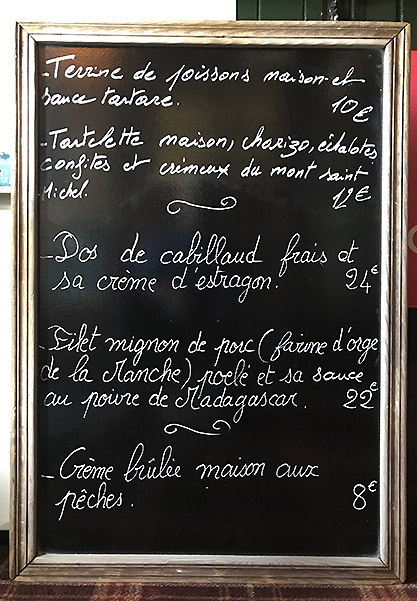 - Terrine de poissons maison et
sauce tartare. 10€
- Tartelette maison, chorizo, échalotes
confites et crémeux du mont saint
Michel. 12€
- Dos de cabillaud frais et
sa crème d'estragon. 24€
- Filet mignon de porc (farine d'orge
de la Manche) poelé et sa sauce
au poivre de Madagascar. 22€
- Crème brûlée maison aux
pêches. 8€